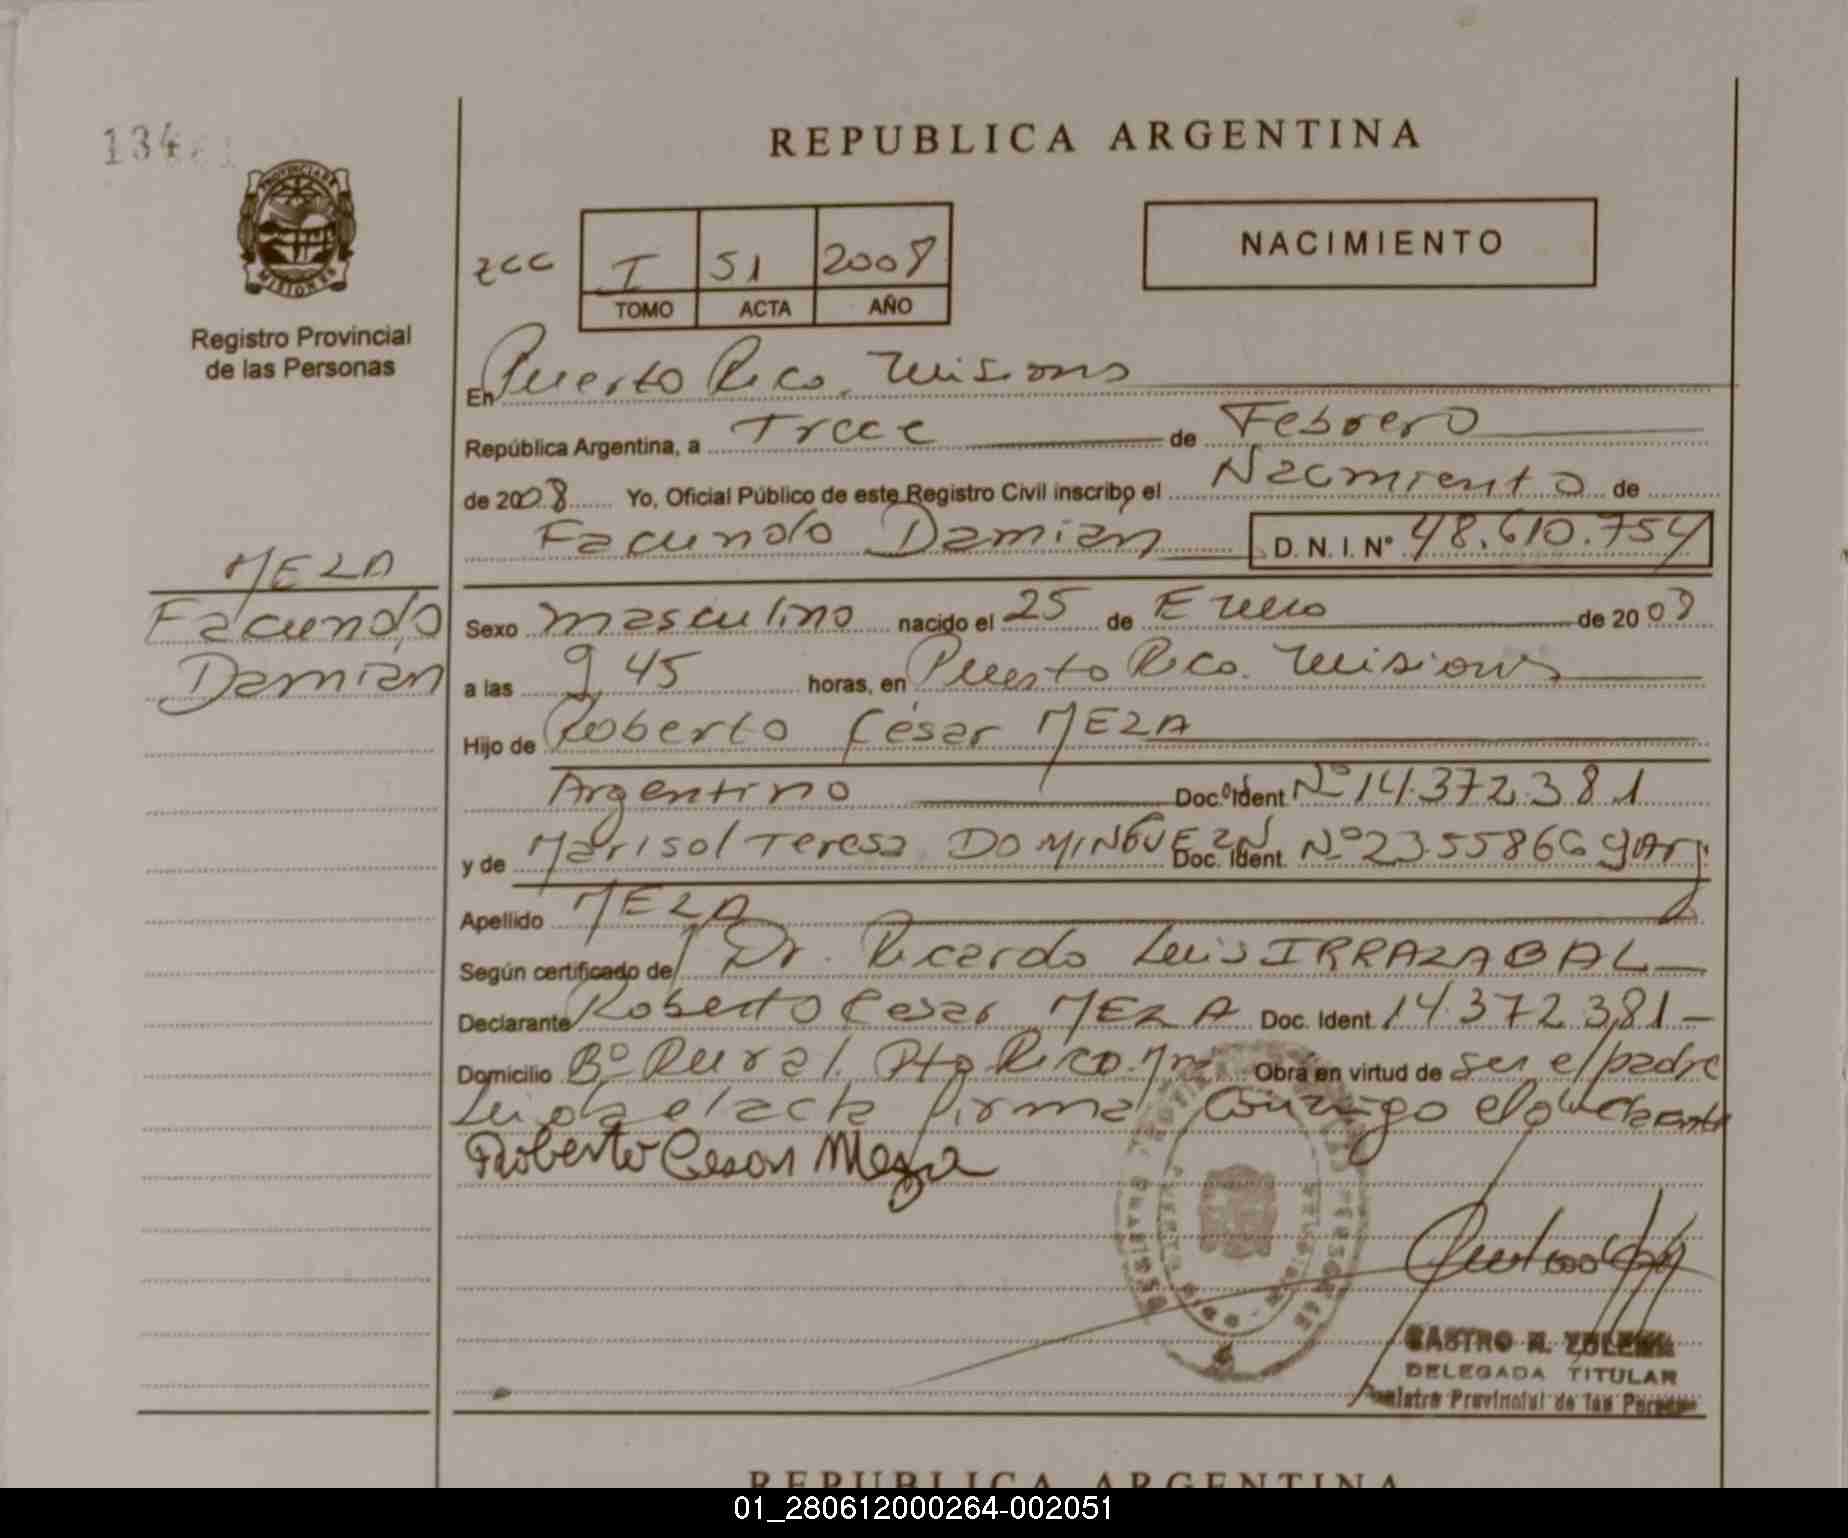 134
PROVINCIA DE
MISIONES
Registro Provincial
de las Personas
MEZA
Facundo
Damián
REPUBLICA ARGENTINA
NACIMIENTO
I 51 2008
TOMO ACTA AÑO
En Puerto Rico, Misiones
República Argentina, a Trece de Febrero
de 2008 Yo, Oficial Público de este Registro Civil inscribo el Nacimiento de
Facundo Damián D. N. I. Nº 48.610.754
Sexo masculino nacido el 25 de Enero de 2008
a las 9 45 horas, en Puerto Rico. Misiones
Hijo de Roberto César MEZA
Argentino Doc. Ident. Nº 14.372.381
y de Marisol Teresa DOMINGUEZ Doc. Ident. Nº 23558669 Arg.
Apellido MEZA
Según certificado de Dr. Ricardo Luis IRRAZABAL
Declarante Roberto Cesar MEZA Doc. Ident. 14.372.381
Domicilio Bº Rural. Pto Rico. Mnes Obra en virtud de ser el padre
Leida el acta firma conmigo el declarante
Roberto Cesar Meza
CASTRO N. ZULEMA
DELEGADA TITULAR
Registro Provincial de las Personas
REPUBLICA ARGENTINA
01_280612000264-002051